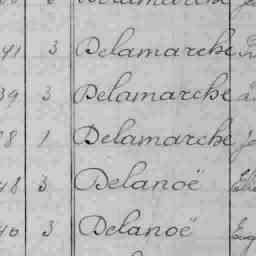 Delamarche
41 3 Delamarche
39 3 Delamarche
8 1 Delamarche
48 3 Delanoë
40 3 Delanoë Eug